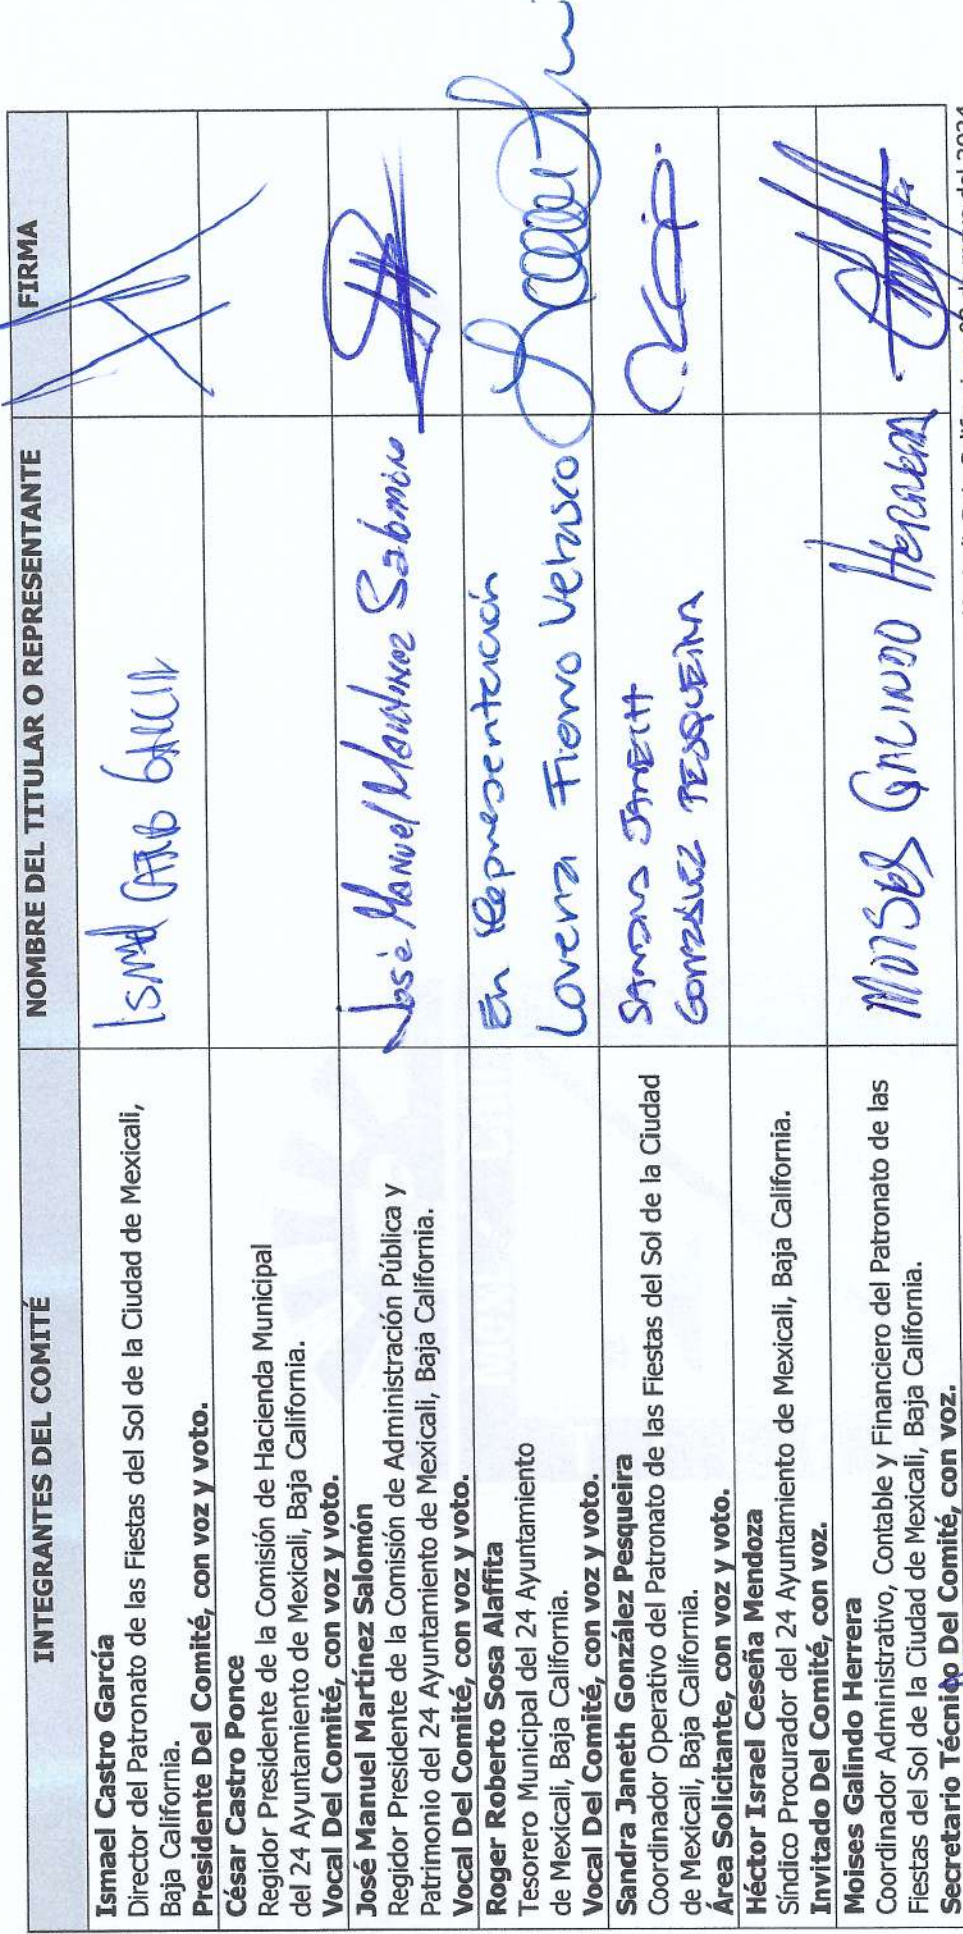 INTEGRANTES DEL COMITÉ
NOMBRE DEL TITULAR O REPRESENTANTE
FIRMA
Ismael Castro García
Director del Patronato de las Fiestas del Sol de la Ciudad de Mexicali,
Baja California.
Presidente Del Comité, con voz y voto.
Ismael Castro García
César Castro Ponce
Regidor Presidente de la Comisión de Hacienda Municipal
del 24 Ayuntamiento de Mexicali, Baja California.
Vocal Del Comité, con voz y voto.
José Manuel Martínez Salomón
Regidor Presidente de la Comisión de Administración Pública y
Patrimonio del 24 Ayuntamiento de Mexicali, Baja California.
Vocal Del Comité, con voz y voto.
José Manuel Martínez Salomón
Roger Roberto Sosa Alaffita
Tesorero Municipal del 24 Ayuntamiento
de Mexicali, Baja California.
Vocal Del Comité, con voz y voto.
En Representación
Lorena Fierro Velasco
Sandra Janeth González Pesqueira
Coordinador Operativo del Patronato de las Fiestas del Sol de la Ciudad
de Mexicali, Baja California.
Área Solicitante, con voz y voto.
SANDRA JANETH
GONZALEZ PESQUEIRA
Héctor Israel Ceseña Mendoza
Síndico Procurador del 24 Ayuntamiento de Mexicali, Baja California.
Invitado Del Comité, con voz.
Moises Galindo Herrera
Coordinador Administrativo, Contable y Financiero del Patronato de las
Fiestas del Sol de la Ciudad de Mexicali, Baja California.
Secretario Técnico Del Comité, con voz.
MOISES GALINDO HERRERA
del 2024